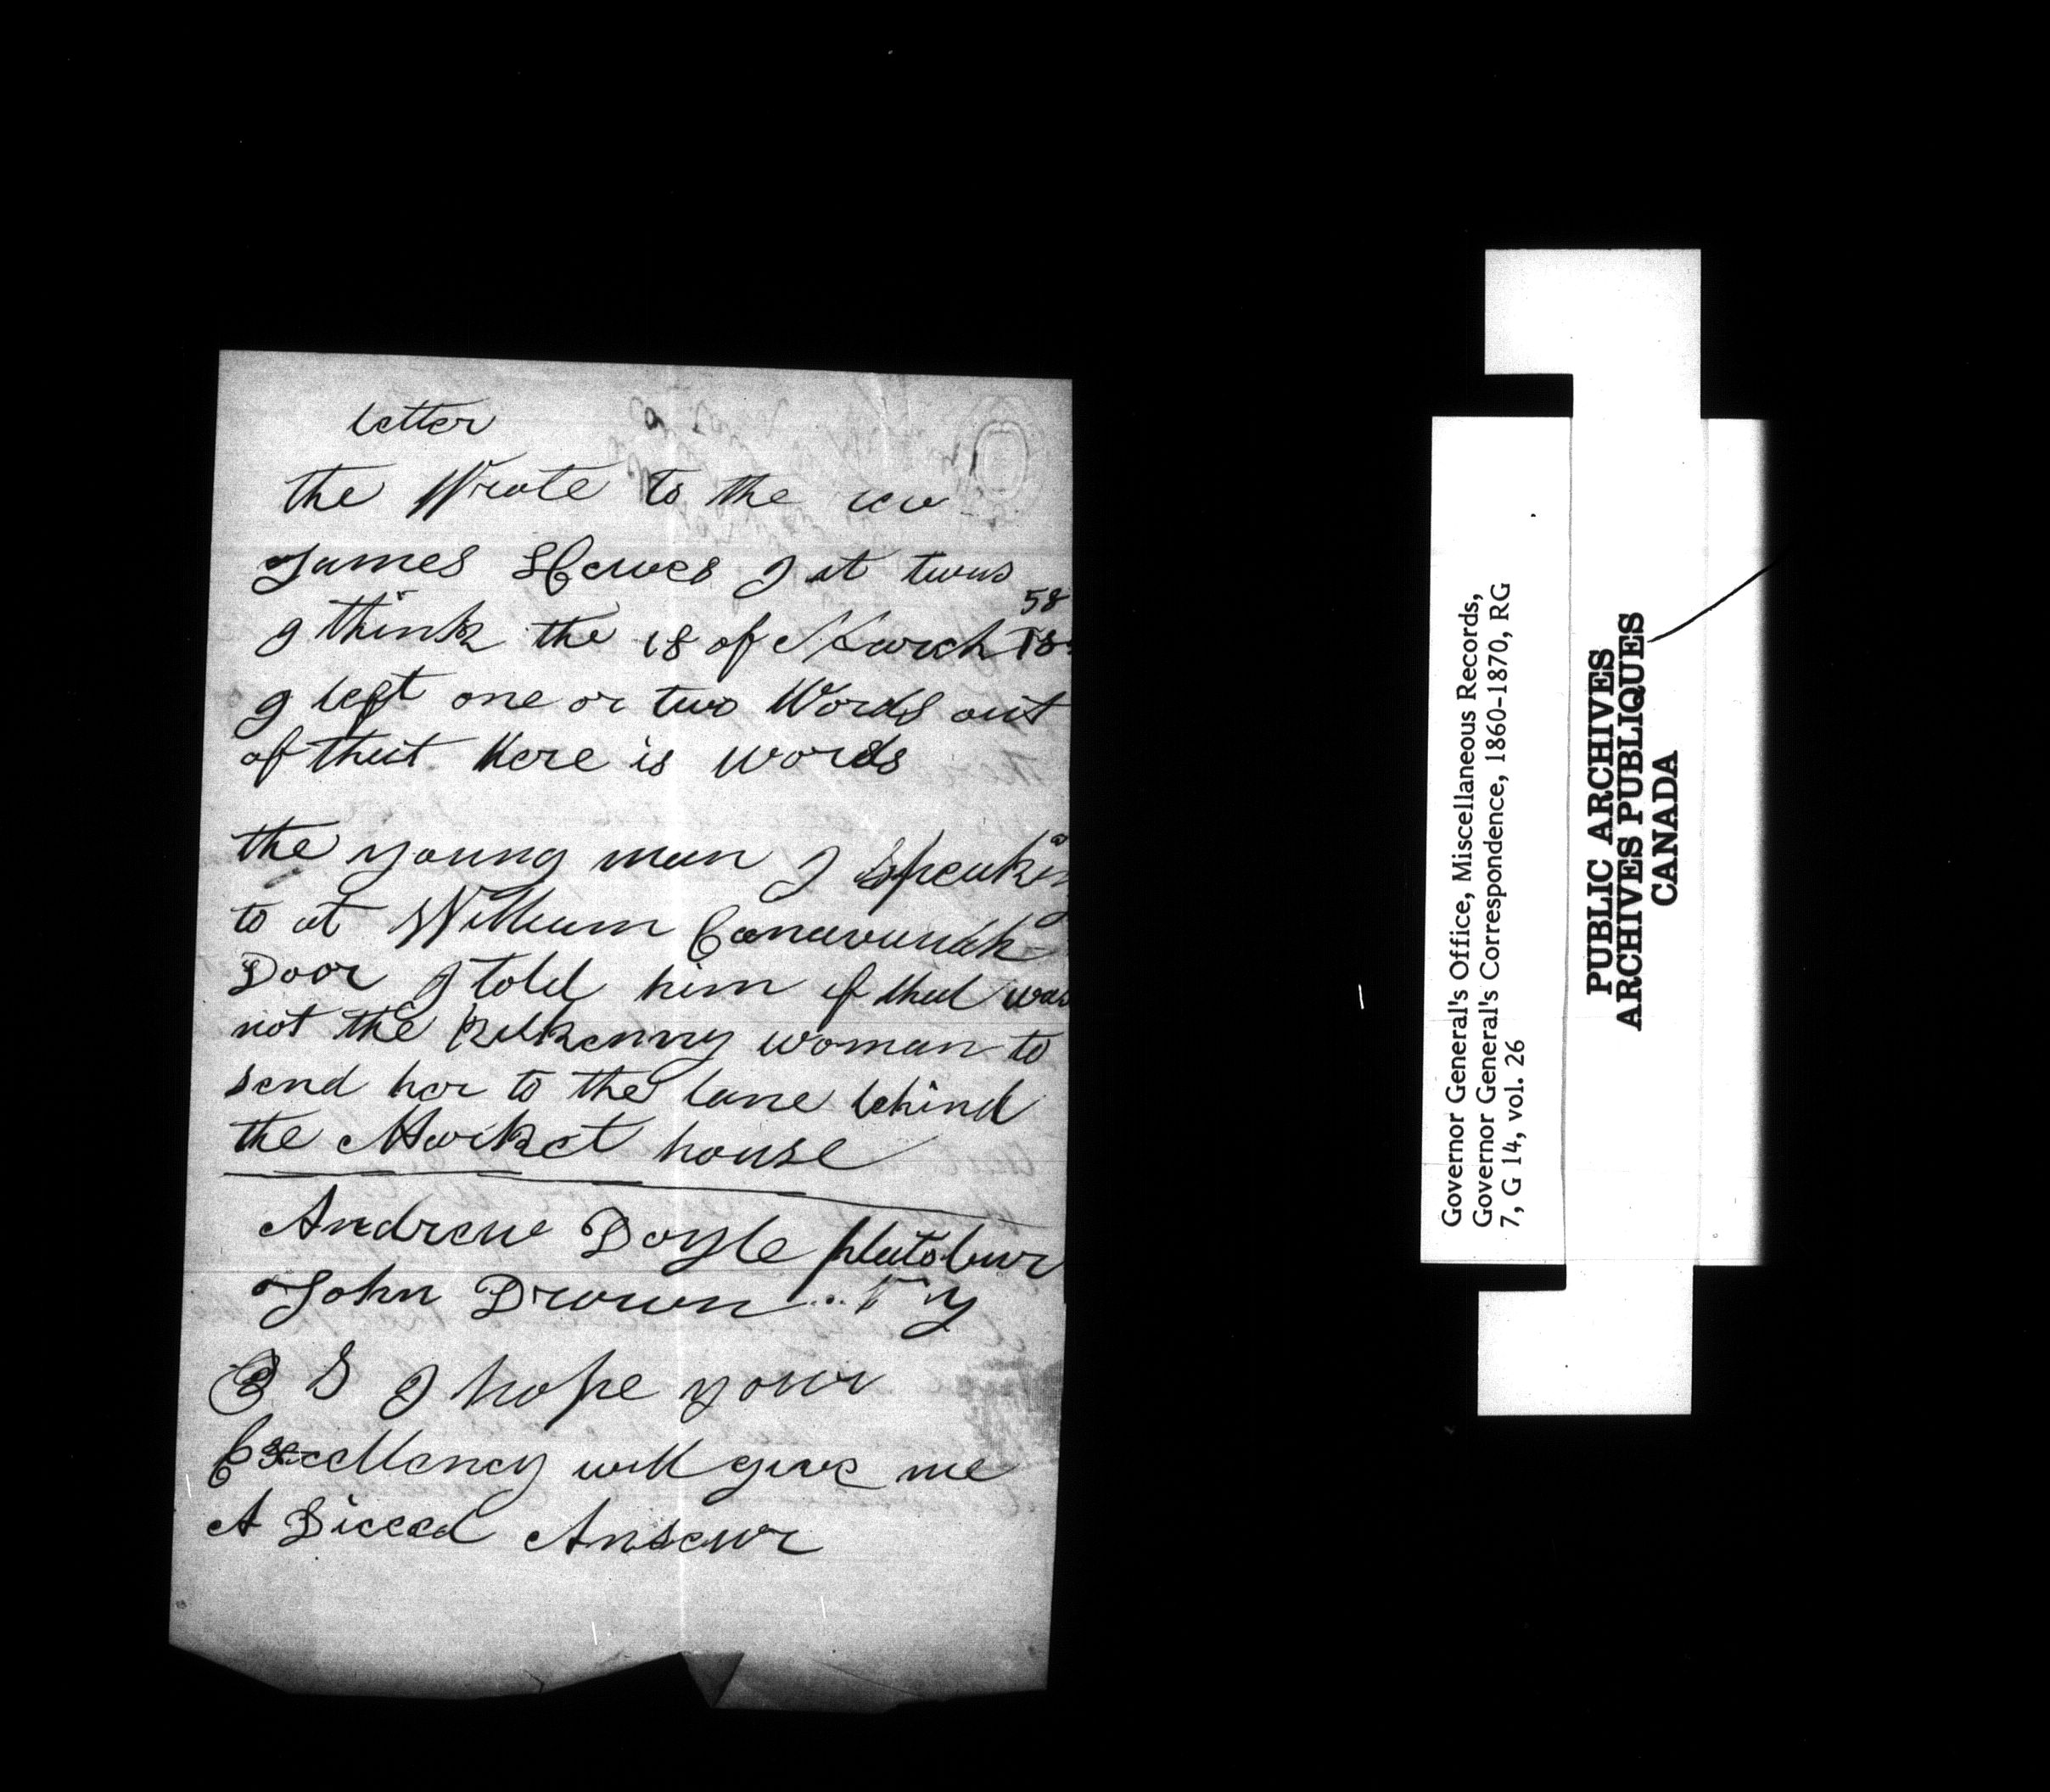 letter
the Wrote to the rev
James Hewes I at twas
I think the 18 of March 1858
I left one or two Words out
of that Here is words
the young man I Speaking
to at William Canavanah
Door I told him if that was
not the Kilkenny woman to
send her to the lane behind
the Market house
Andrew Doyle platsbur
John Brown N Y
P S I hope your
Excellency will give me
A Answr
Governor General's Office, Miscellaneous Records,
Governor General's Correspondence, 1860-1870, RG
7, G 14, vol. 26
PUBLIC ARCHIVES
ARCHIVES PUBLIQUES
CANADA